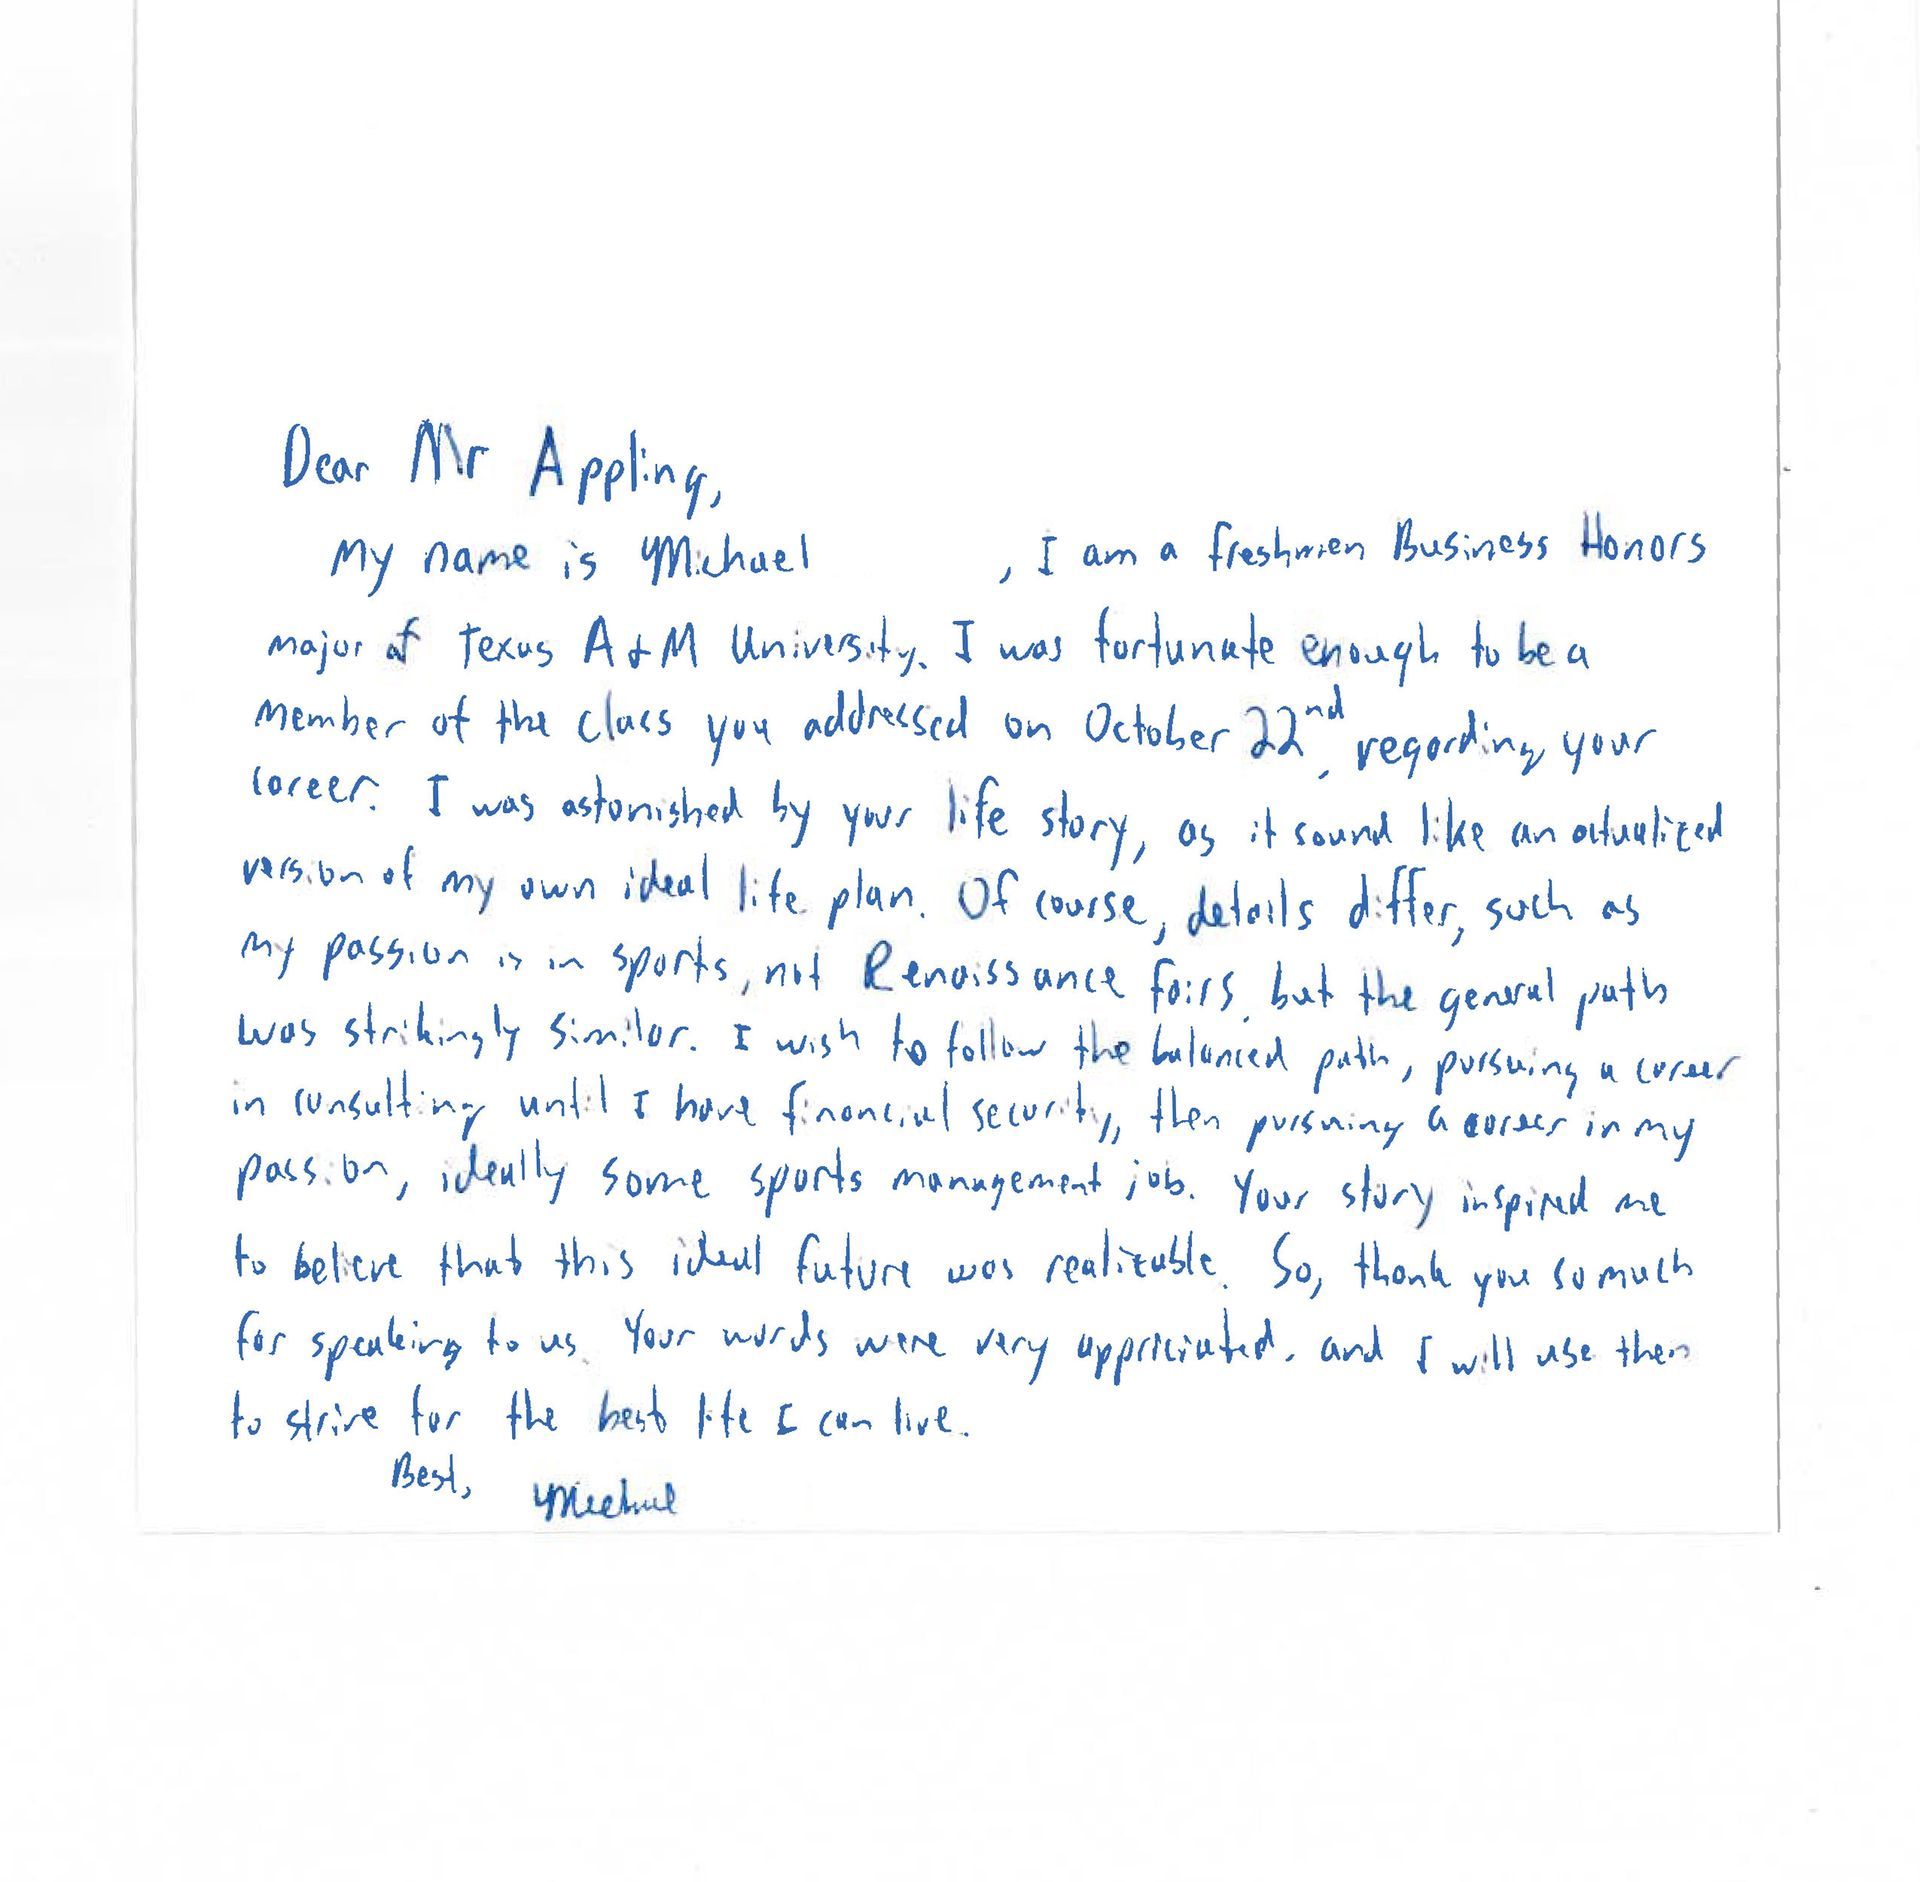 Dear Mr Appling,
My name is Michael , I am a freshmen Business Honors
major at Texas A&M University. I was fortunate enough to be a
member of the class you addressed on October 22nd, regarding your
career. I was astonished by your life story, as it sound like an actualized
version of my own ideal life plan. Of course, details differ, such as
my passion is in sports, not Renaissance fairs, but the general path
was strikingly similar. I wish to follow the balanced path, pursuing a career
in consulting until I have financial security, then pursuing a career in my
passion, ideally some sports management job. Your story inspired me
to believe that this ideal future was realizable. So, thank you so much
for speaking to us. Your words were very appriciated, and I will use them
to strive for the best life I can live.
Best, Michael